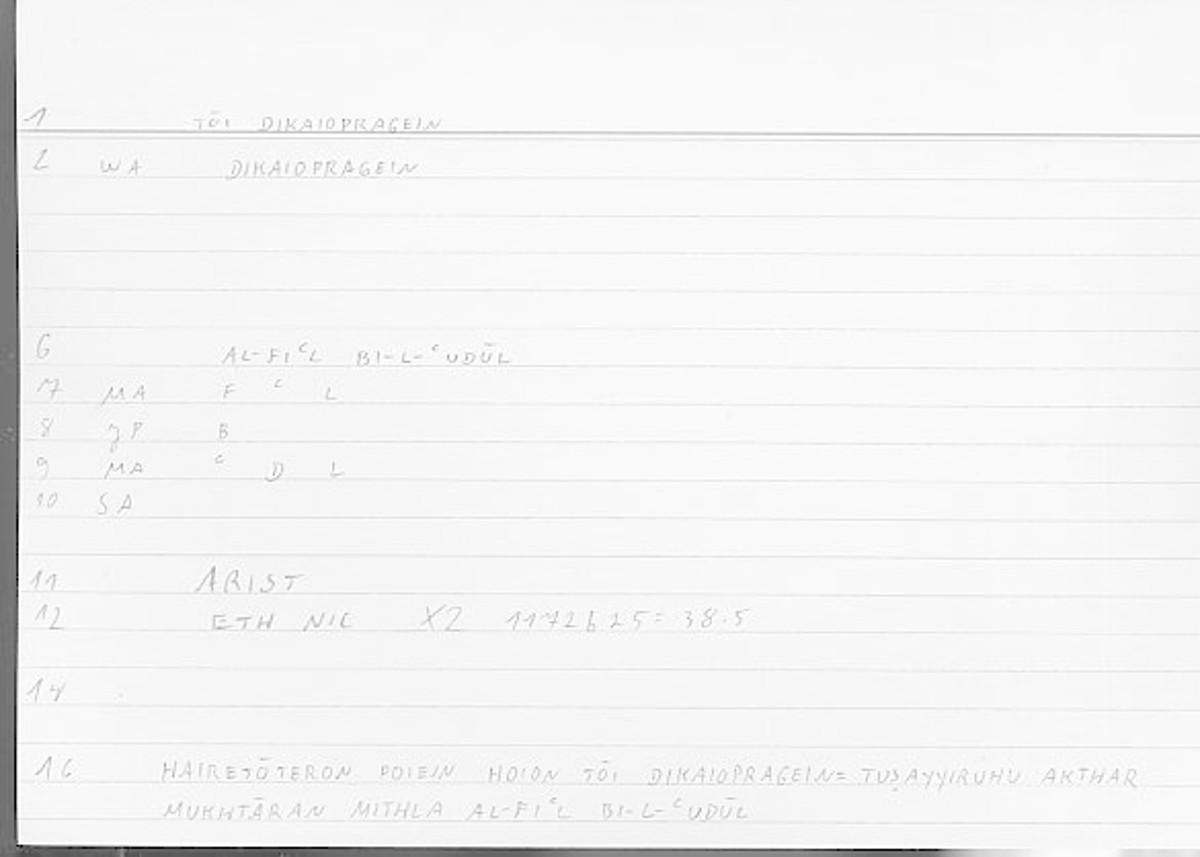 1 TŌI DIKAIOPRAGEIN
2 WA DIKAIOPRAGEIN
6 AL-FIᶜL BI-L-ᶜUDŪL
7 MA F ᶜ L
8 B
9 MA ᶜ D L
10 SA
11 ARIST
12 ETH NIC X2 1172b25= 38.5
14
16 HAIRETŌTERON POIEIN HOION TŌI DIKAIOPRAGEIN= TUṢAYYIRUHU AKTHAR
MUKHTĀRAN MITHLA AL-FIᶜL BI-L-ᶜUDŪL